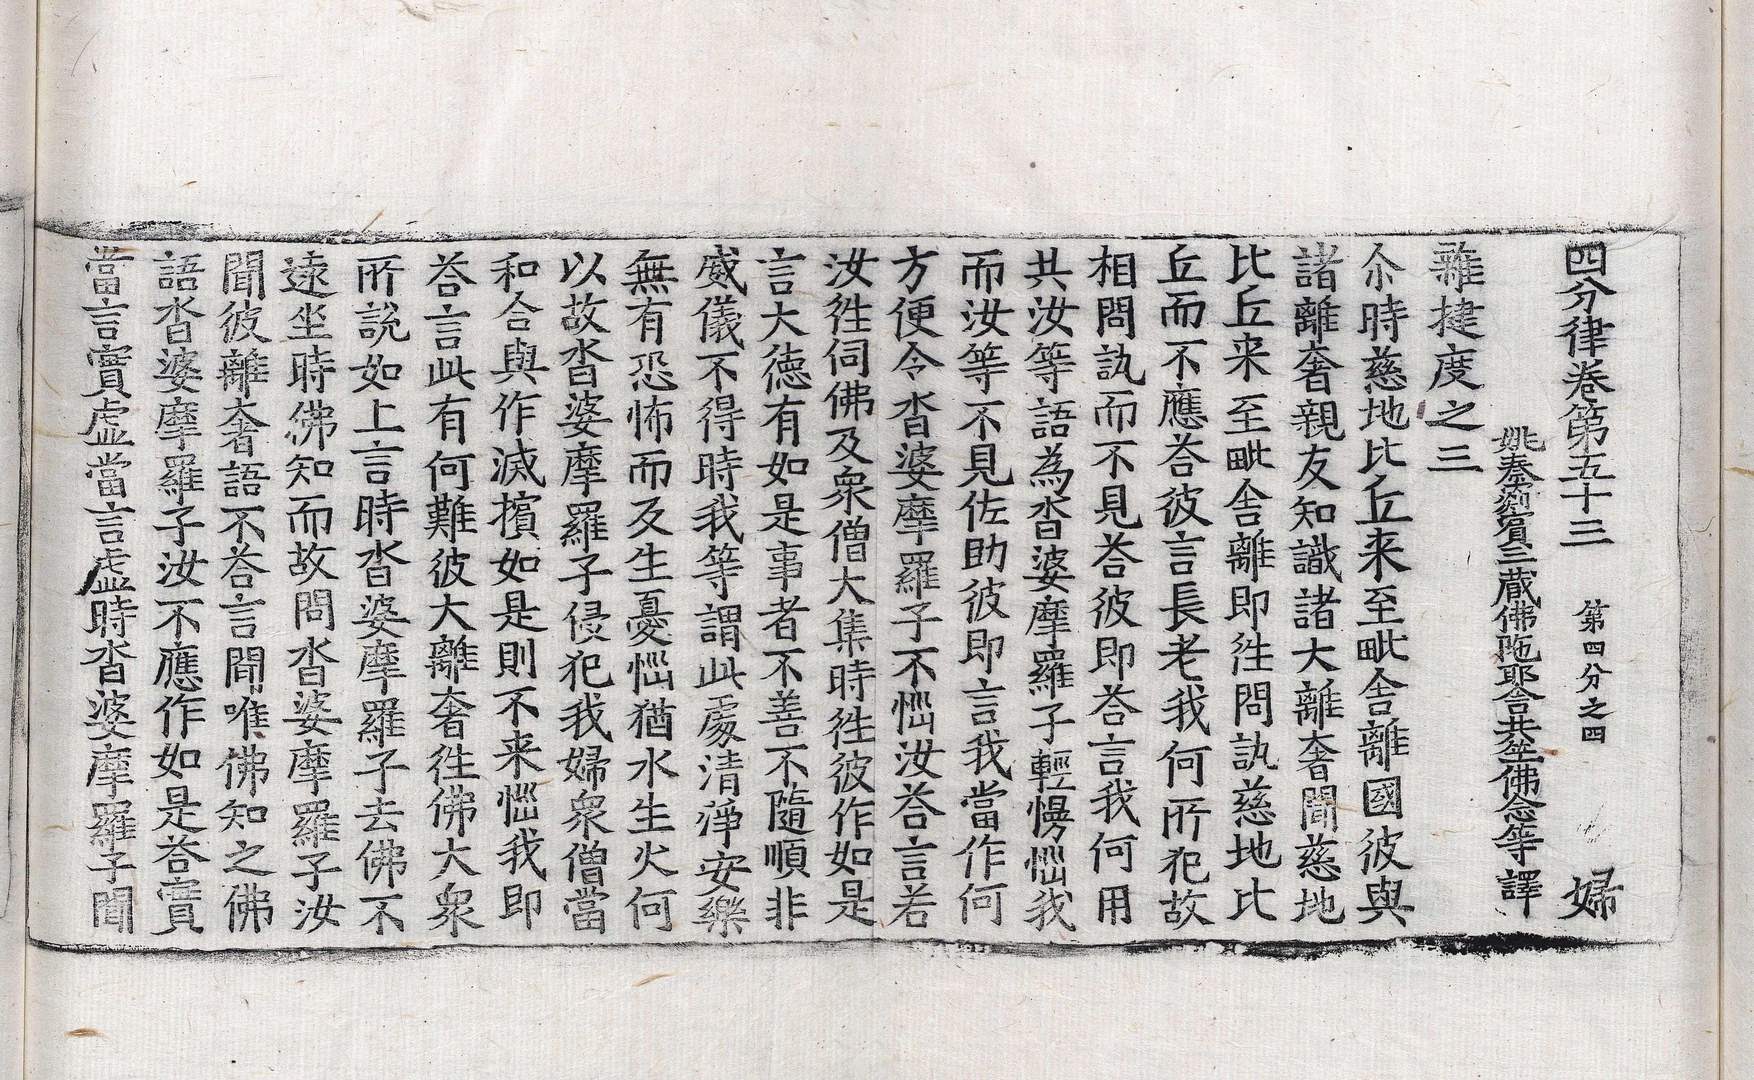 四分律卷第五十三　第四分之四　婦
姚秦罽賓三藏佛陁耶舍共竺佛念等譯
雜揵度之三
尒時慈地比丘来至毗舍離國彼與
諸離奢親友知識諸大離奢聞慈地
比丘来至毗舍離即徃問訊慈地比
丘而不應荅彼言長老我何所犯故
相問訊而不見荅彼即荅言我何用
共汝等語為沓婆摩羅子輕慢惱我
而汝等不見佐助彼即言我當作何
方便令沓婆摩羅子不惱汝荅言若
汝徃伺佛及衆僧大集時徃彼作如是
言大德有如是事者不善不隨順非
威儀不得時我等謂此處清淨安樂
無有恐怖而反生憂惱猶水生火何
以故沓婆摩羅子侵犯我婦衆僧當
和合與作滅擯如是則不来惱我即
荅言此有何難彼大離奢徃佛大衆
所說如上言時沓婆摩羅子去佛不
遠坐時佛知而故問沓婆摩羅子汝
聞彼離奢語不荅言聞唯佛知之佛
語沓婆摩羅子汝不應作如是荅實
當言實虛當言虛時沓婆摩羅子聞